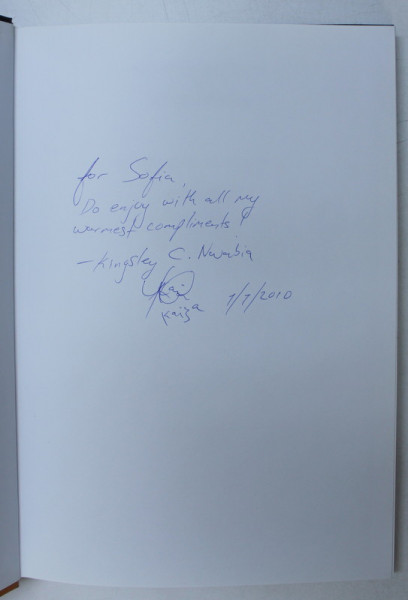 for Sofia,
Do enjoy with all my
warmest compliments!
- Kingsley C. Nwabia
Kaiza 1/7/2010